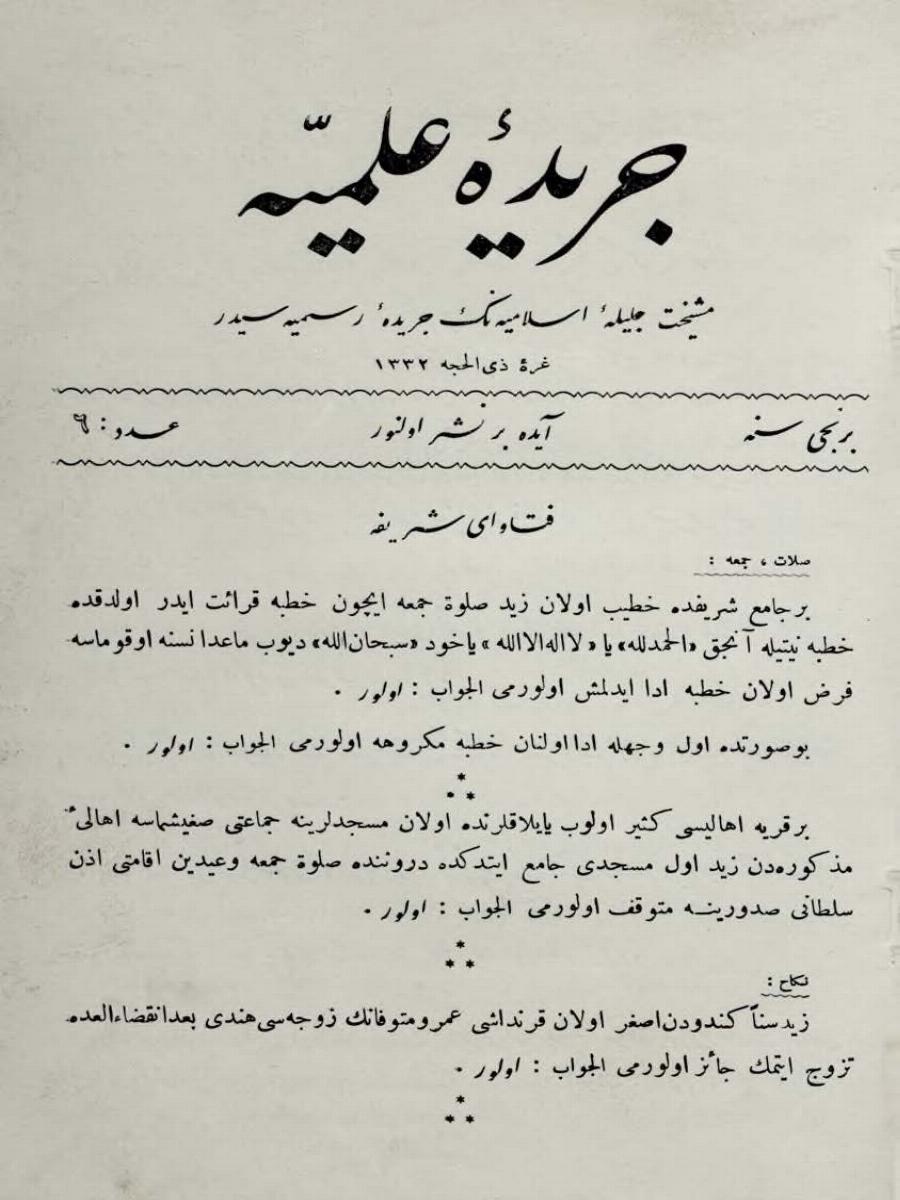 جريدۀ علميّه
مشيخت جليلۀ اسلاميه نك جريدۀ رسميه سيدر
غرۀ ذى الحجه ١٣٣٢
برنجى سنه
آيده بر نشر اولنور
عدد : ٦
فتاواى شريفه
صلات ، جمعه :
بر جامع شريفده خطيب اولان زيد صلوة جمعه ايچون خطبه قرائت ايدر اولدقده
خطبه نيتيله آنجق «الحمدلله» يا « لااله الا الله » ياخود «سبحان الله» ديوب ماعدا نسنه اوقوماسه
فرض اولان خطبه ادا ايدلمش اولورمى الجواب : اولور .
بو صورتده اول وجهله ادا اولنان خطبه مكروهه اولورمى الجواب : اولور .
* * *
بر قريه اهاليسى كثير اولوب يايلاقلرنده اولان مسجدلرينه جماعتى صغيشماسه اهالىٔ
مذكوره دن زيد اول مسجدى جامع ايتدكده دروننده صلوة جمعه وعيدين اقامتى اذن
سلطانى صدورينه متوقف اولورمى الجواب : اولور .
* * *
نكاح :
زيد سناً كندودن اصغر اولان قرنداشى عمرو متوفانك زوجه سى هندى بعد انقضاء العده
تزوج ايتمك جائز اولورمى الجواب : اولور .
* * *